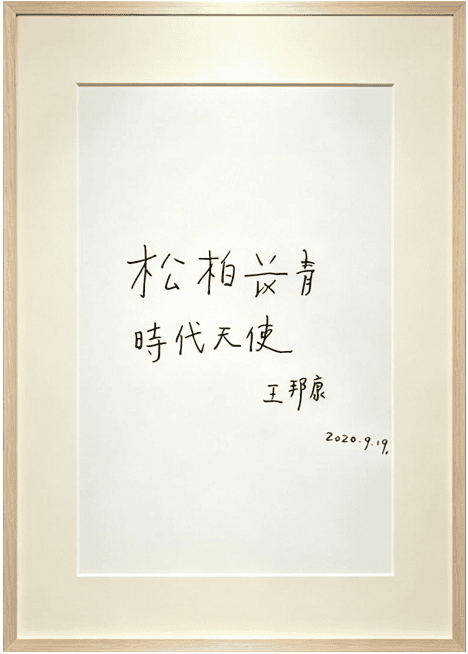 松柏长青
時代天使
王邦康
2020.9.19.